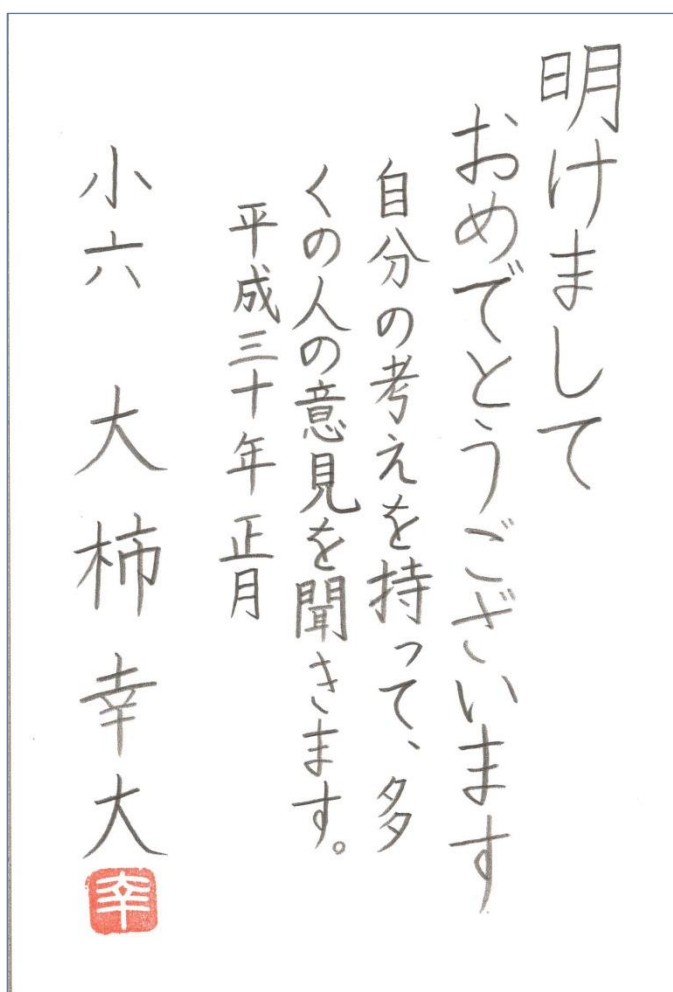 明けまして
おめでとうございます
自分の考えを持って、多
くの人の意見を聞きます。
平成三十年 正月
小六 大柿幸大
幸